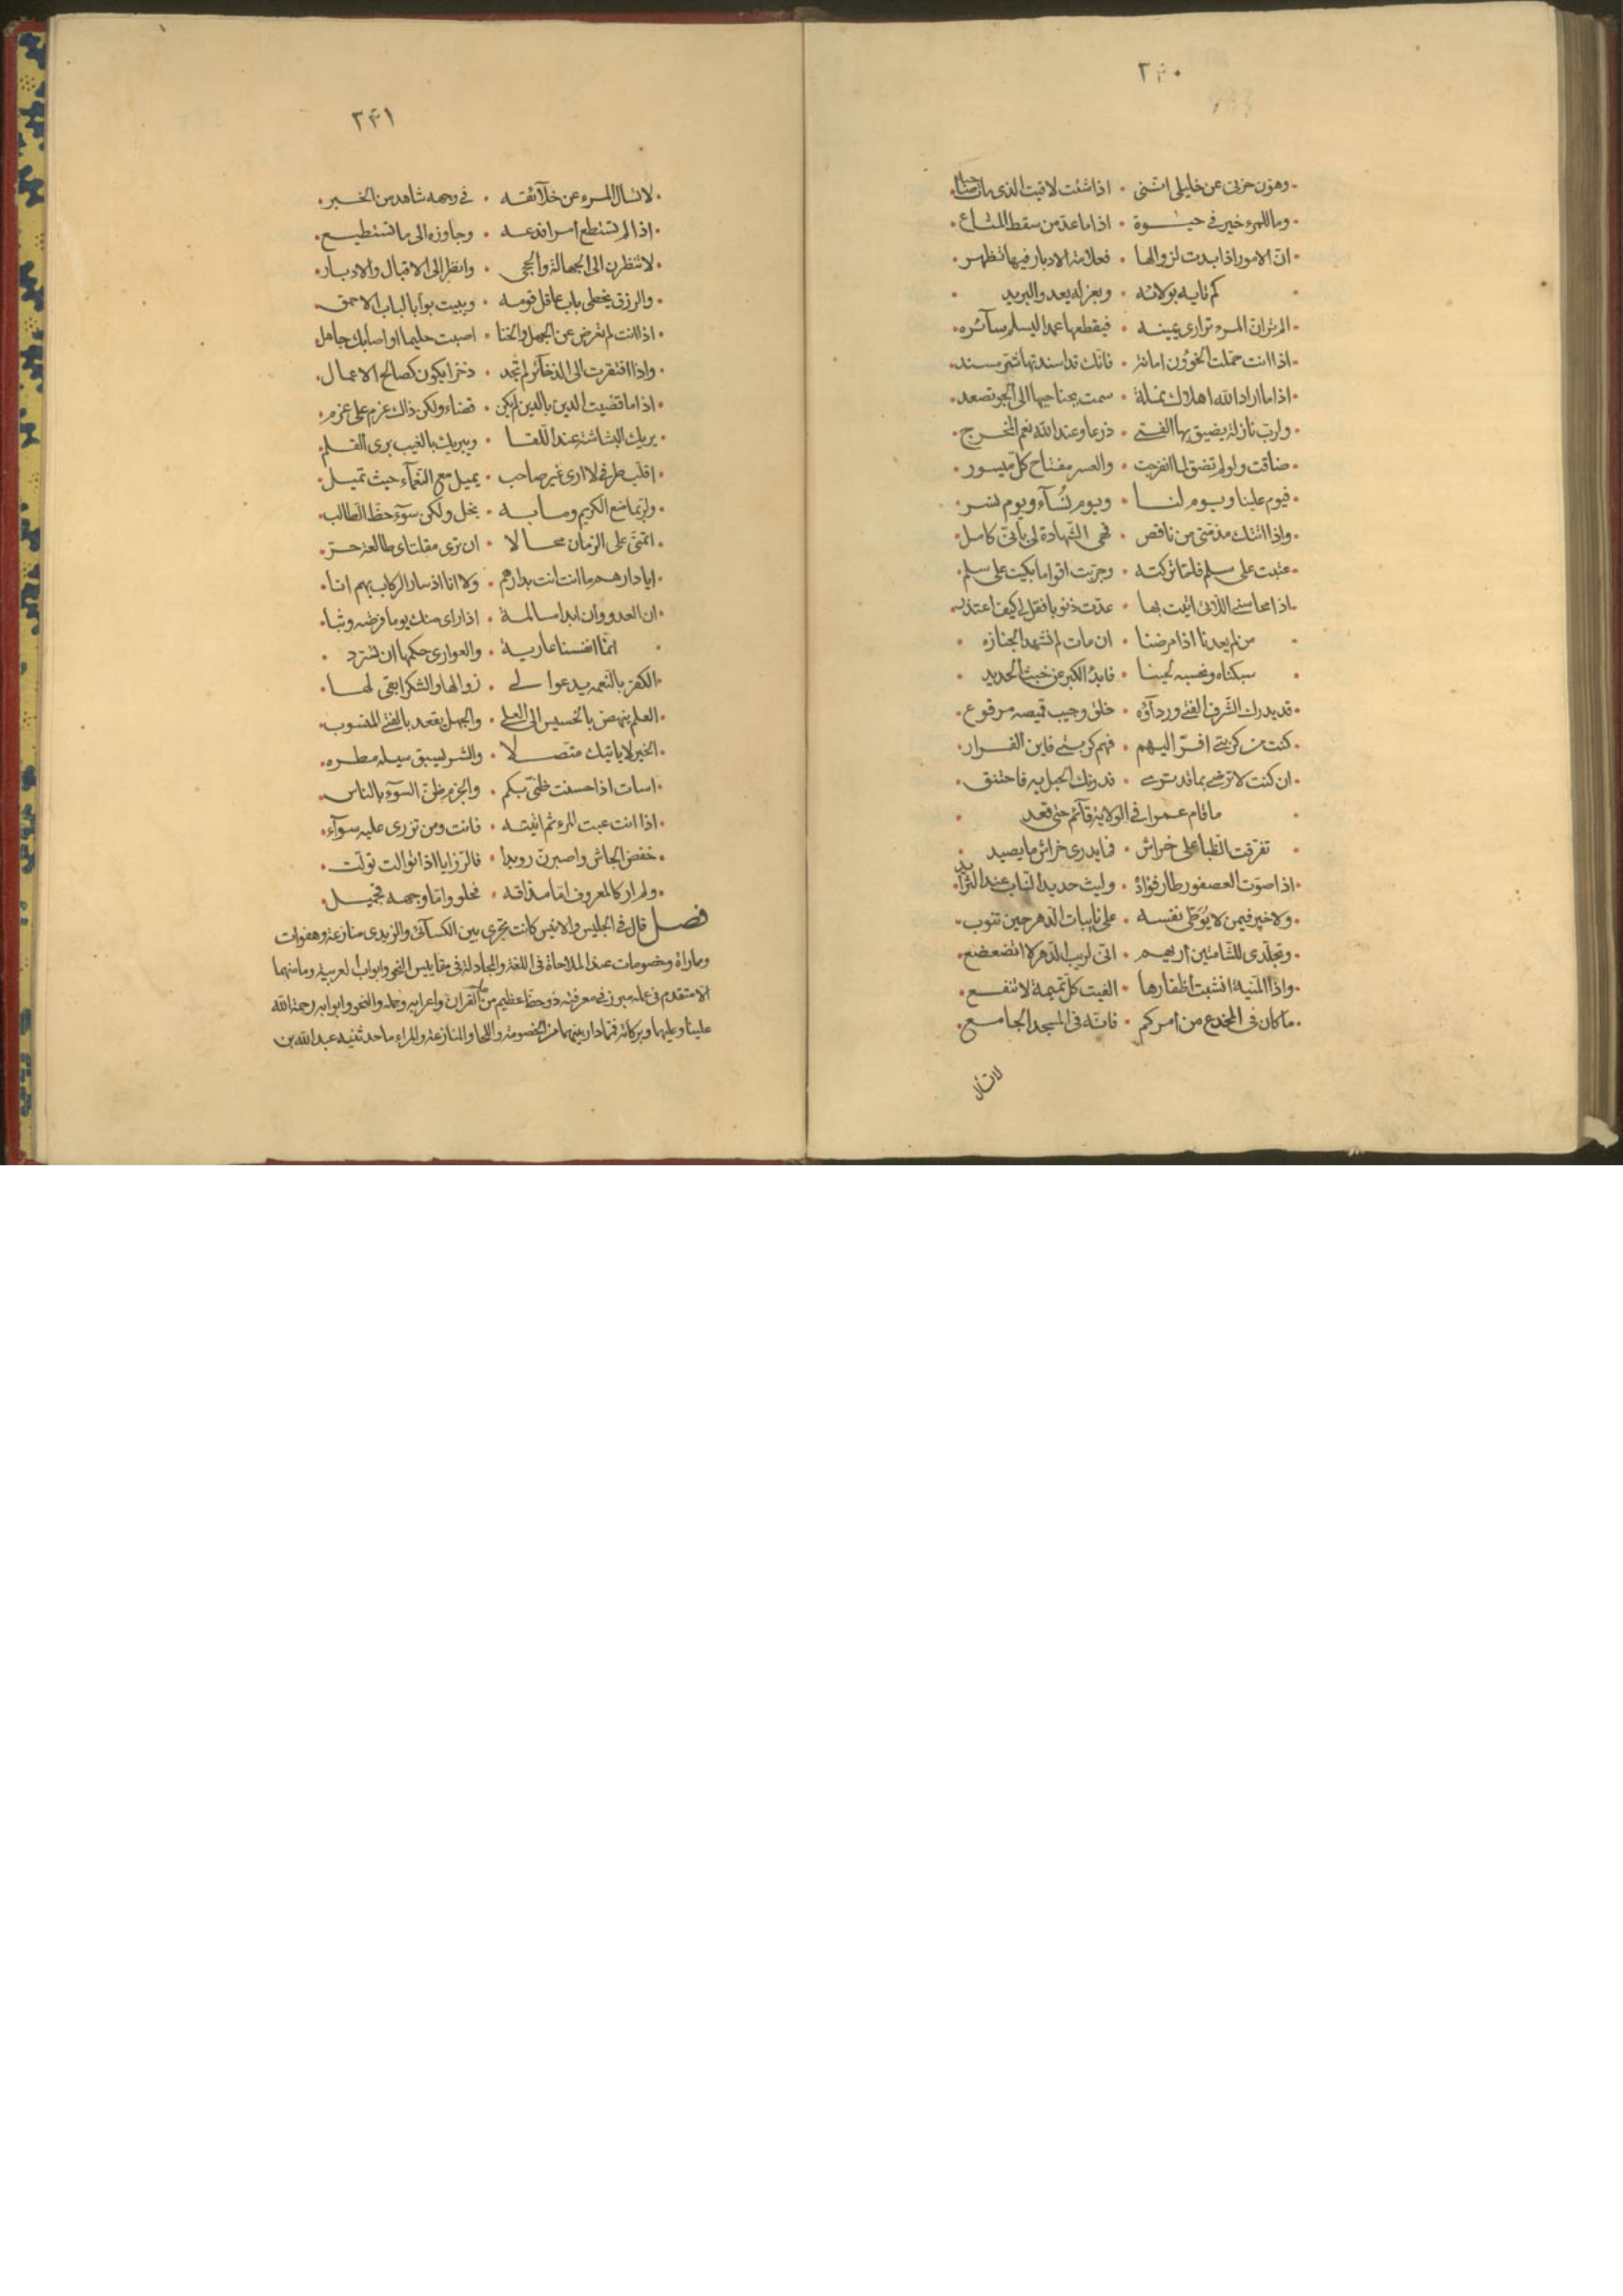 ٣٤٠
وهون حزنى عن خليلى اننى • اذا شئت لاقيت الذى مات صاحبه
وما للمرء خير فى حيوة • اذا ما عد من سقط المتاع
ان الامور اذا بدت لزوالها • فعلامة الادبار فيها تظهر
كم تايه بولائه • وبعزله يعدو البريد
الم تر ان المرء تزارى يمينه • فيقطعها عمدا ليسلم سآئره
اذا انت حملت الخوون امانة • فانك قد اسندتها شر مسند
اذا ما اراد الله اهلاك نملة • سمت بجناحيها الى الجو تصعد
ولرب نازلة يضيق بها الفتى • ذرعا وعند الله نعم المخرج
ضاقت ولو لم تضق لما انفرجت • والعسر مفتاح كل ميسور
فيوم علينا ويوم لنا • ويوم نُسآء ويوم نسر
واذا اتتك مذمتى من ناقص • فهى الشهادة لى بانى كامل
عتبت على سلم فلما تركته • وجربت اقواما بكيت على سلم
اذا محاسنى اللائى اتيت بها • عدت ذنوبا فقل لى كيف اعتذر
من لم يعدنا اذا مرضنا • ان مات لم نشهد الجنازه
سبكناه ونحسبه لجينا • فابدا الكير عن خبث الحديد
قد يدرك الشرف الفتى وردآؤه • خلق وجيب قميصه مرقوع
كنت من كربتى افر اليهم • فهم كربتى فاين الفرار
ان كنت لا ترضى بما قد ترى • فدونك الحبل به فاختنق
ما قام عمرا فى الولاية قآئم حتى قعد
تفرقت الظبا على خراش • فما يدرى خراش ما يصيد
اذا صوت العصفور طار فؤاده • وليث حديد الناب عند الثرايد
ولا خير فيمن لا يُوَطى نفسه • على نايبات الدهر حين تنوب
وتجلدى للشامتين اريهم • انى لريب الدهر لا اتضعضع
واذا المنية انشبت اظفارها • الفيت كل تميمة لا تنفع
ما كان فى المخدع من امركم • فانه فى المسجد الجامع
لا تسأل
٣٤١
لا تسأل المرء عن خلآئقه • فى وجهه شاهد من الخبر
اذا لم تستطع امرا فدعه • وجاوزه الى ما تستطيع
لا تنظرن الى الجهالة والحجى • وانظر الى الاقبال والادبار
والرزق يخطى باب عاقل قومه • ويبيت بوابا لباب الاحمق
اذا انت لم تعرض عن الجهل والخنا • اصبت حليما او اصابك جاهل
واذا افتقرت الى الذخآئر لم تجد • ذخرا يكون كصالح الاعمال
اذا ما قضيت الدين بالدين لم يكن • قضاء ولكن ذاك غرم على غرم
يريك البشاشة عند اللقا • ويبريك بالغيب برى القلم
اقلب طرفى لا ارى غير صاحب • يميل مع النعمآء حيث تميل
ولربما منع الكريم وما به • بخل ولكن سوء حظ الطالب
اتمنى على الزمان محالا • ان ترى مقلتاى طالعة حر
ايا دارهم ما انت انت بدارهم • ولا انا اذ سار الركاب بهم انا
ان العدو وان ابدا مسالمة • اذا راى منك يوما فرصة وثبا
انما انفسنا عارية • والعوارى حكمها ان تسترد
الكفر بالنعمه يدعوا لى • زوالها والشكر ابقى لها
العلم ينهض بالخسيس الى العلى • والجهل يقعد بالفتى المنسوب
الخير لا ياتيك متصلا • والشر يسبق سيله مطره
اسات اذا حسنت ظنى بكم • والحزم ظن السوء بالناس
اذا انت عبت المرء ثم اتيته • فانت ومن تزرى عليه سوآء
خفض الجاش واصبرن رويدا • فالرزايا اذا توالت تولت
ولم ار كالمعروف اما مذاقه • فحلو واما وجهه فجميل
فصل قال فى الجليس والانيس كانت تجرى بين الكسآئى والزيدى منازعة وهفوات
ومماراة وخصومات عند الملاحاة فى اللغة والمجادلة فى مقاييس النحو وابواب العربية وما منهما
الا متقدم فى علمه مبرز فى معرفته ذو حظ عظيم من علم القران واعرابه وعلمه والنحو وابوابه رحمة الله
علينا وعليهما وبركاته فمما دار بينهما من الخصومة واللحا والمنازعة والمراء ما حدثنيه عبد الله بن